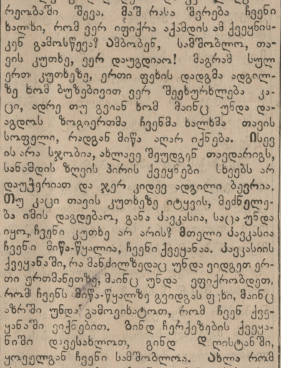 რეობაში შევა. მაშ რასა შერება ჩვენი
ხალხი, რომ ვერ იფიქრა აქამდის ამ ქვეყნის-
კენ გამოსწევა? ამბობენ, სამშობლოა, თა-
ვის კუთხე, ვერ დავუგდიაო! მაგრამ სულ
ერთ კუთხეზე, ერთი ფეხის დადგმა ადგილ-
ზე ხომ ბუზებივით ვერ შეეხურხლება კა-
ცი, ადრე თუ გვიან ხომ მაინც უნდა და-
აგდოს ზოგიერთმა ჩვენმა ხალხმა თავის
სოფელი, რადგან მიწა აღარ იქნება. ისევ
ის არა სჯობია, ახლავე შეუდგენ თავდარიგს,
სანამდის ზღვის პირის ქვეყნები სხვებს არ
დაუჭერიათ და ჯერ კიდევ ადგილი ბევრია.
თუ კაცი თავის კუთხეზე იტყვის, მეძნელე-
ბა იმის დაგდებაო, განა კავკასია, საცა უნდა
იყო, ჩვენი კუთხე არ არის? მთელი კავკასია
ჩვენი მიწა-წყალია, ჩვენი ქვეყანაა. კავკასიის
ქვეყანაში, რა მანძილზედაც უნდა ვიდგეთ ერ-
თი ერთმანეთზე, მაინც უნდა ვფიქრობდეთ,
რომ ჩვენს მიწა-წყალზე გვიდგას ფეხი, მაინც
აზრში უნდა გამოვიხატოთ, რომ ჩვენ ქვე-
ყანაში ვიქნებით. გინდ ჩერქეზების ქვეყა-
ნიში დავესახლოთ, გინდ ლისტანში,
ყოველგან ჩვენი სამშობლოა. ახლა რომ